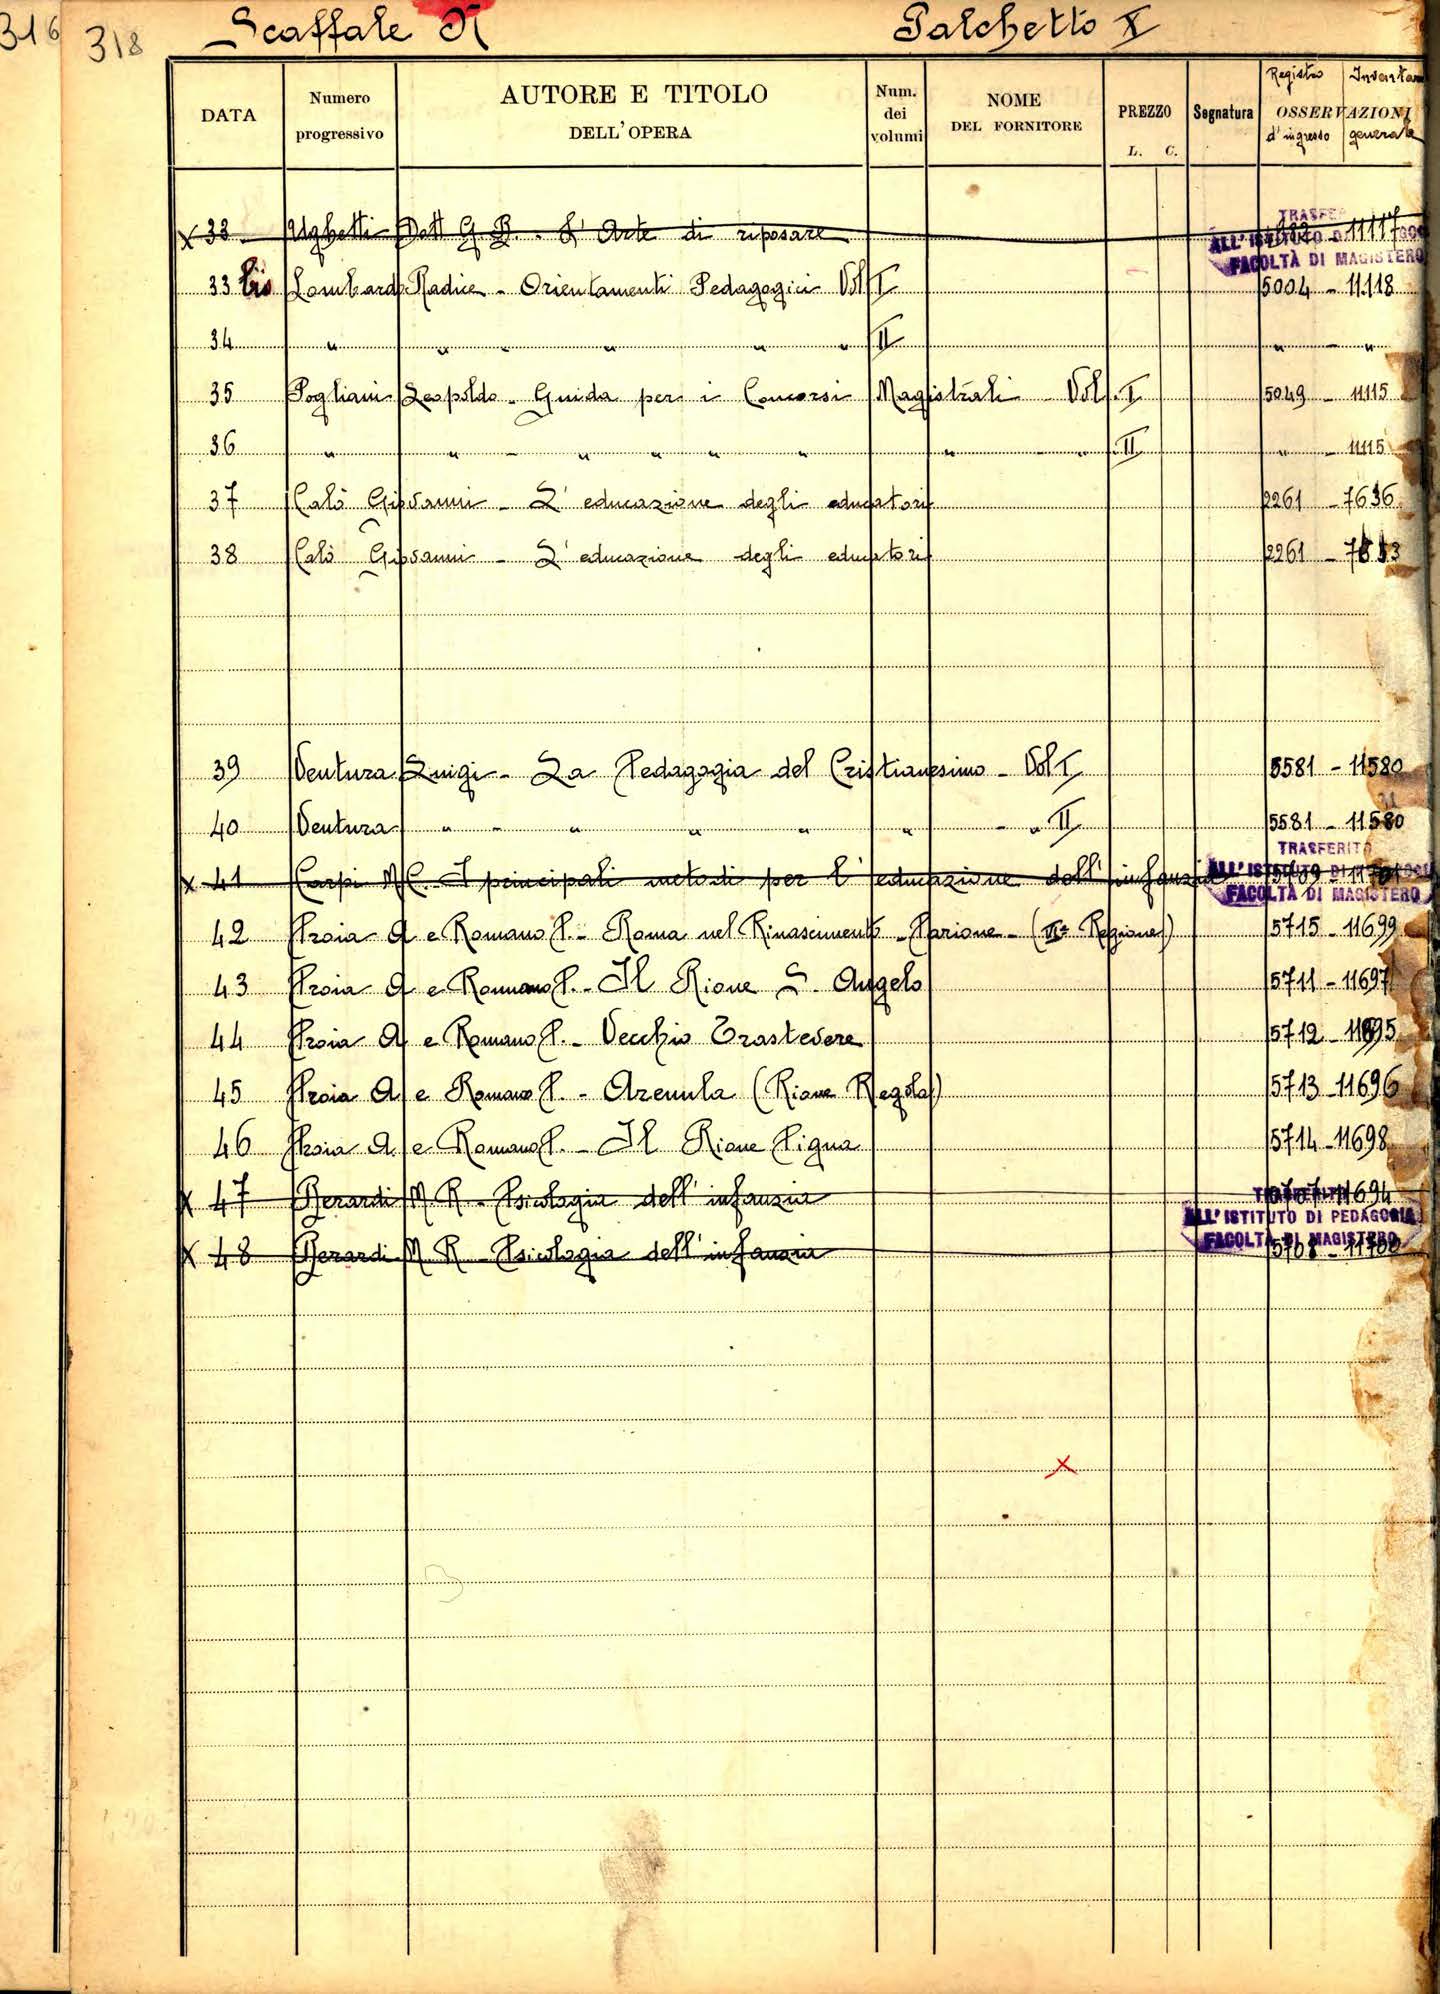 316 318 Scaffale Palchetto X
DATA Numero progressivo AUTORE E TITOLO DELL'OPERA Num. dei volumi NOME DEL FORNITORE PREZZO L. C. Segnatura Registro d'ingresso OSSERVAZIONI generale
x 33 Ughetti Dott G. B. - L'Arte di riposare 11117
TRASFE
ALL'ISTITUTO D
FACOLTÀ DI MAGISTERO
33 bis Lombardo Radice - Orientamenti Pedagogici Vol I 5004 - 11118
34 " " - " " " II " - "
35 Pogliani Leopoldo - Guida per i Concorsi Magistrali Vol. I 5049 - 11115
36 " " - " " " " " - " II " - 11115
37 Calò Giovanni - L'educazione degli educatori 2261 - 7636
38 Calò Giovanni - L'educazione degli educatori 2261 -
39 Ventura Luigi - La Pedagogia del Cristianesimo - Vol I 5581 - 11580
40 Ventura " - " " " " - " II 5581 - 11580
TRASFERITO
x 41 Carpi M C. - I principali metodi per l'educazione dell'infanzia
ALL'ISTITUTO DI
FACOLTÀ DI MAGISTERO
42 Proia A e Romano P. - Roma nel Rinascimento - Parione - (VIa Regione) 5715 - 11699
43 Proia A e Romano P. - Il Rione S. Angelo 5711 - 11697
44 Proia A e Romano P. - Vecchio Trastevere 5712 - 11695
45 Proia A e Romano P. - Arenula (Rione Regola) 5713 - 11696
46 Proia A. e Romano P. - Il Rione Pigna 5714 - 11698
x 47 Berardi M. R - Psicologia dell'infanzia 11694
TRASFERITO
ALL'ISTITUTO DI PEDAGOGIA
FACOLTÀ DI MAGISTERO
x 48 Berardi M R - Psicologia dell'infanzia 5708 - 11700
x